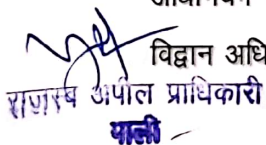 विद्वान अधि
राजस्व अपील प्राधिकारी
पाली